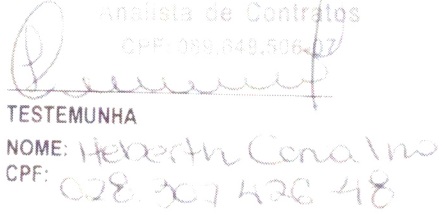 Analista de Contratos
CPF: 089.648.506-07
TESTEMUNHA
NOME: Heberth
CPF: 028.307 426 48